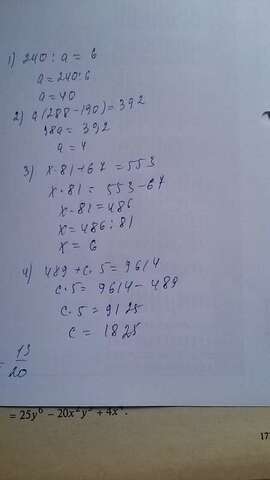 1) 240 : a = 6
a = 240 : 6
a = 40
2) a(288 - 190) = 392
98a = 392
a = 4
3) x · 81 + 67 = 553
x · 81 = 553 - 67
x · 81 = 486
x = 486 : 81
x = 6
4) 489 + c · 5 = 9614
c · 5 = 9614 - 489
c · 5 = 9125
c = 1825
= 13/20